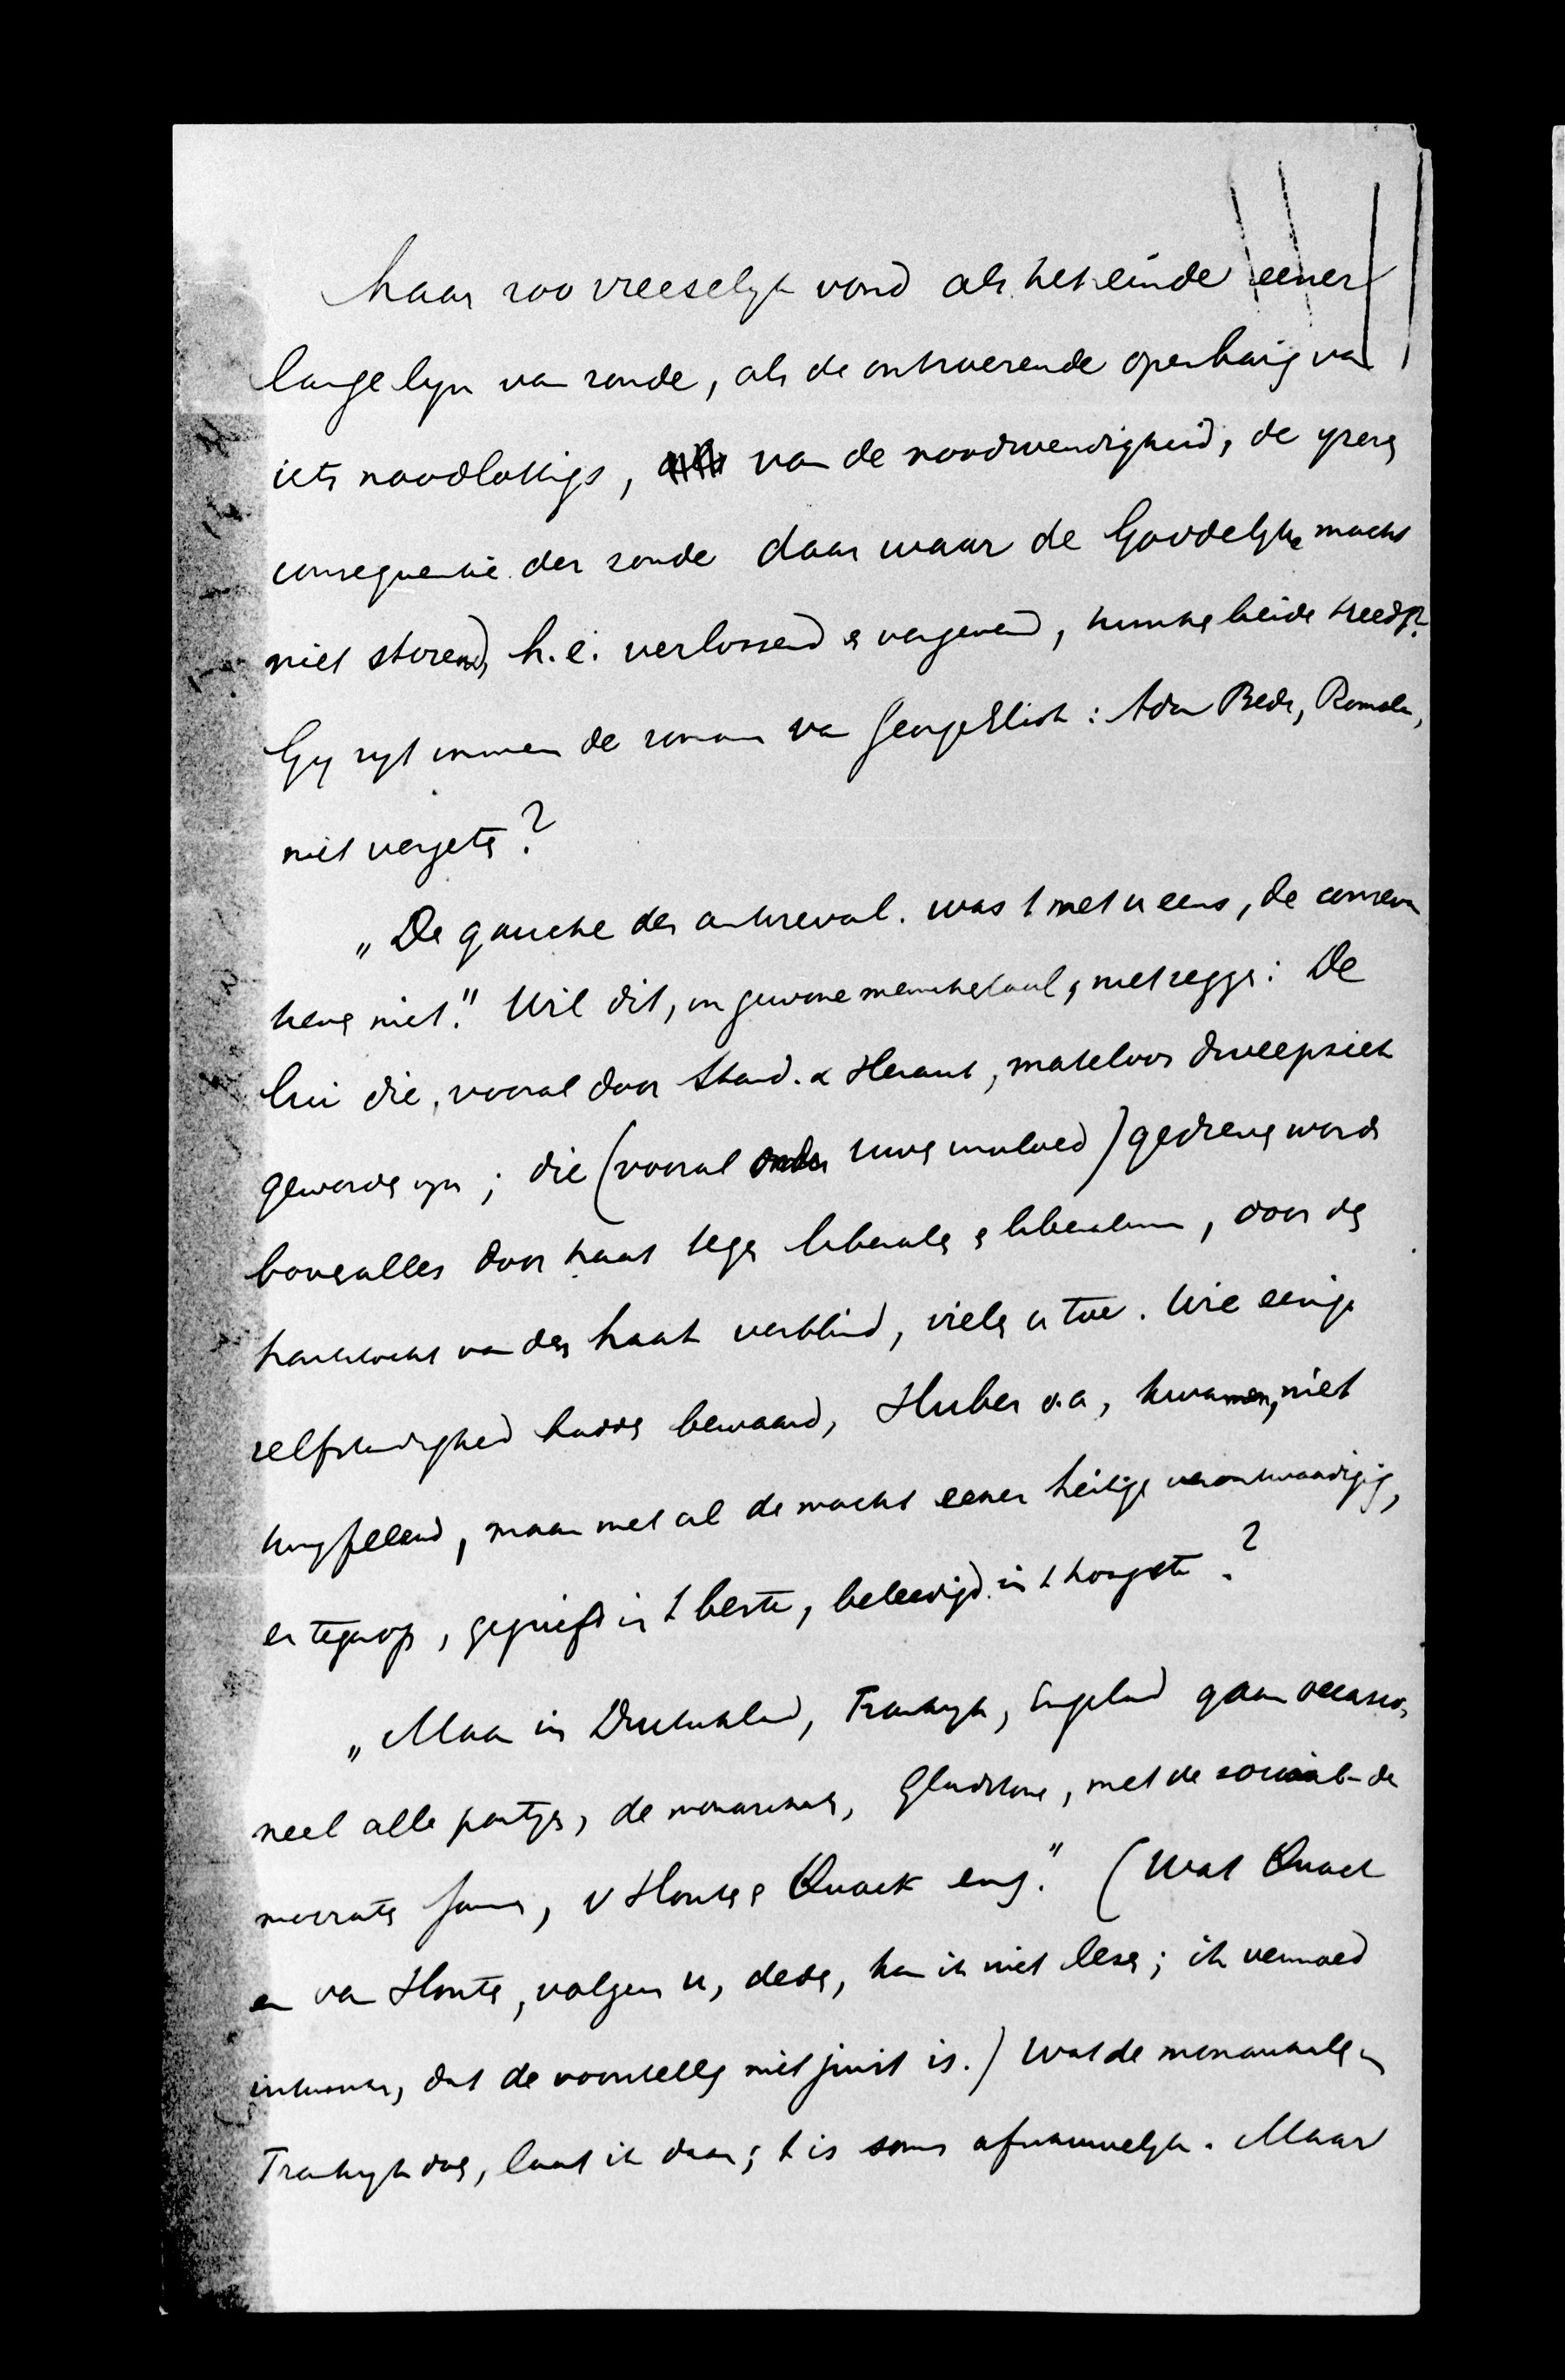 haar zoo vreeselyk vond als het einde eener
lange lyn van zonde, als de ontroerende openbarg van
iets noodlottigs, van de noodwendigheid, de yzeren
consequentie der zonde daar waar de Goddelyke macht
niet storend, h.e. verlossend en vergevend, tusschenbeide treedt?
Gy zyt immers de romans van George Eliot: Adam Bede, Romola,
niet vergeten?
„De gauche der antirevol. was 't met u eens, de conserva
tieven niet." Wil dit, in gewone menschetaal, niet zeggen: De
lui die, vooral door Stand. & Heraut, mateloos dweepziek
geworden zyn; die (vooral uwe invloed) gedreven worden
bovenalles door haat tegen liberalen en liberalisme, door den
hartstocht van den haat verblind, vielen u toe. Wie eenige
zelfstandigheid hadden bewaard, Huber o.a., kwamen, niet
weyfelend, maar met al de macht eener heilige verontwaardigg,
er tegenop, gegriefd in 't beste, beleedigd in 't hoogste?
„Maar in Duitschland, Frankryk, Engeland gaan occasio-
neel alle partyen, de monarchale, Gladstone, met de sociaal-de
mocraten samen, v Houten & Quack enz." (Wat Quack
en van Houten, volgens u, deden, kan ik niet lezen; ik vermoed
intusschen, dat de voorstellg niet juist is.) Wat de monarchalen in
Frankryk doen, laat ik daar; 't is soms afschuwelyk. Maar